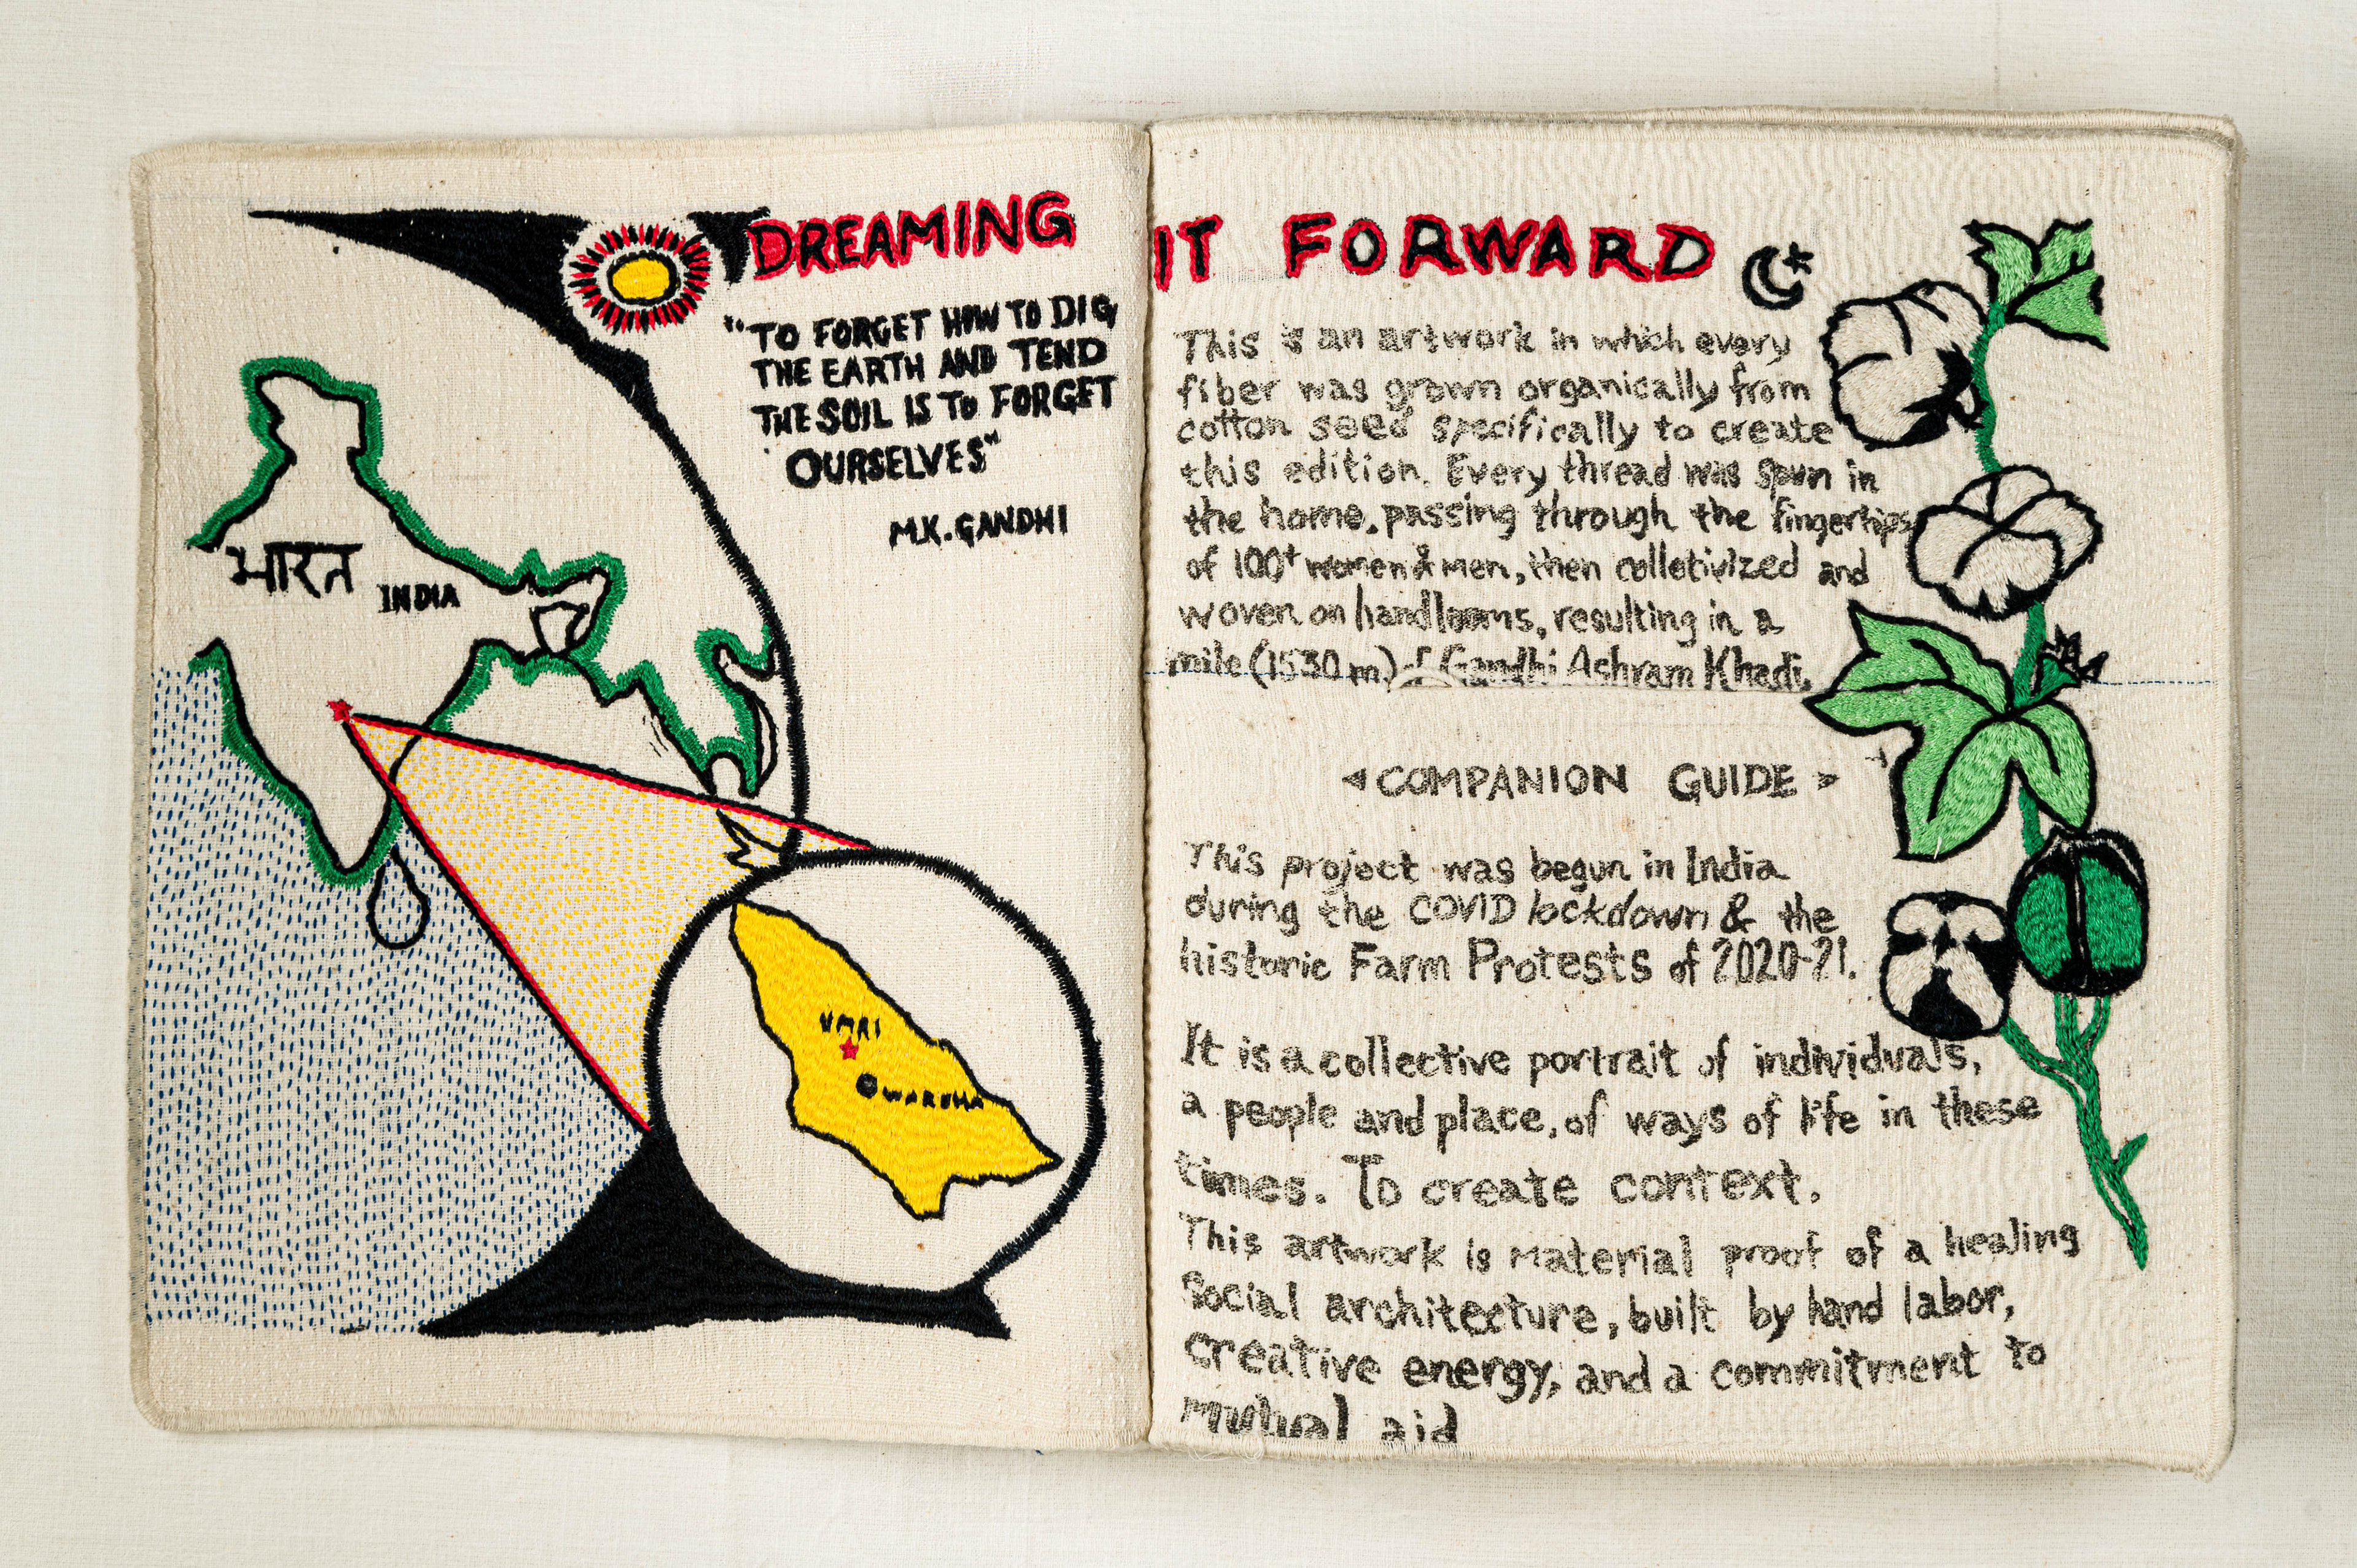 DREAMING IT FORWARD
"TO FORGET HOW TO DIG
THE EARTH AND TEND
THE SOIL IS TO FORGET
OURSELVES"
M.K. GANDHI
भारत INDIA
UMRI
WARDHA
This is an artwork in which every
fiber was grown organically from
cotton seed specifically to create
this edition. Every thread was spun in
the home, passing through the fingertips
of 100+ women & men, then colletivized and
woven on handlooms, resulting in a
mile (1530 m) of Gandhi Ashram Khadi.
<COMPANION GUIDE>
This project was begun in India
during the COVID lockdown & the
historic Farm Protests of 2020-21.
It is a collective portrait of individuals,
a people and place, of ways of life in these
times. To create context.
This artwork is material proof of a healing
Social architecture, built by hand labor,
creative energy, and a commitment to
mutual aid